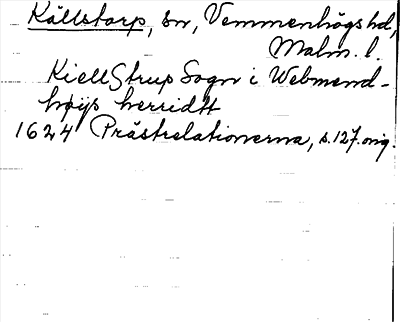 Källstorp, sn, Vemmenhögs hd,
Malm. l.
KiellStrup Sogn i Webmend-
høijs herridtt
1624 Prästrelationerna, s. 127. orig.